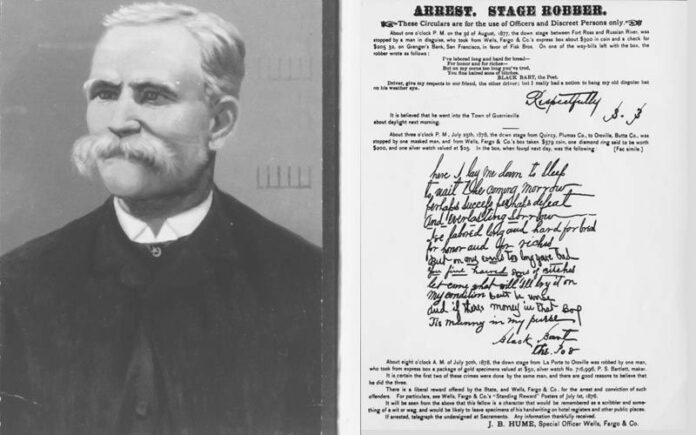 ARREST. STAGE ROBBER.
These Circulars are for the use of Officers and Discreet Persons only.
About one o'clock P. M. on the 3d of August, 1877, the down stage between Fort Ross and Russian River, was
stopped by a man in disguise, who took from Wells, Fargo & Co.'s express box about $300 in coin and a check for
$205 32, on Granger's Bank, San Francisco, in favor of Fisk Bros. On one of the way-bills left with the box, the
robber wrote as follows:
I've labored long and hard for bread—
For honor and for riches—
But on my corns too long you've trod,
You fine haired sons of bitches.
BLACK BART, the Poet.
Driver, give my respects to our friend, the other driver; but I really had a notion to hang my old disguise hat
on his weather eye.
Respectfully B. B
It is believed that he went into the Town of Guerneville
about daylight next morning.
About three o'clock P. M., July 25th, 1878, the down stage from Quincy, Plumas Co., to Oroville, Butte Co., was
stopped by one masked man, and from Wells, Fargo & Co.'s box taken $379 coin, one diamond ring said to be worth
$200, and one silver watch valued at $25. In the box, when found next day, was the following: [Fac simile.]
here I lay me down to Sleep
to wait the coming morrow
perhaps success perhaps defeat
And everlasting Sorrow
I've labored long and hard for bred
for honor and for riches
But on my corns to long youve tred
You fine haired sons of Bitches
let come what will I'll try it on
My condition cant be worse
and if theres money in that Box
Tis Munny in my purse
Black Bart
the Po8
About eight o'clock A. M. of July 30th, 1878, the down stage from La Porte to Oroville was robbed by one man,
who took from express box a package of gold specimens valued at $50, silver watch No. 716,996, P. S. Bartlett, maker.
It is certain the first two of these crimes were done by the same man, and there are good reasons to believe that
he did the three.
There is a liberal reward offered by the State, and Wells, Fargo & Co. for the arrest and conviction of such
offenders. For particulars, see Wells, Fargo & Co.'s "Standing Reward" Posters of July 1st, 1876.
It will be seen from the above that this fellow is a character that would be remembered as a scribbler and some-
thing of a wit or wag, and would be likely to leave specimens of his handwriting on hotel registers and other public places.
If arrested, telegraph the undersigned at Sacramento. Any information thankfully received.
J. B. HUME, Special Officer Wells, Fargo & Co.